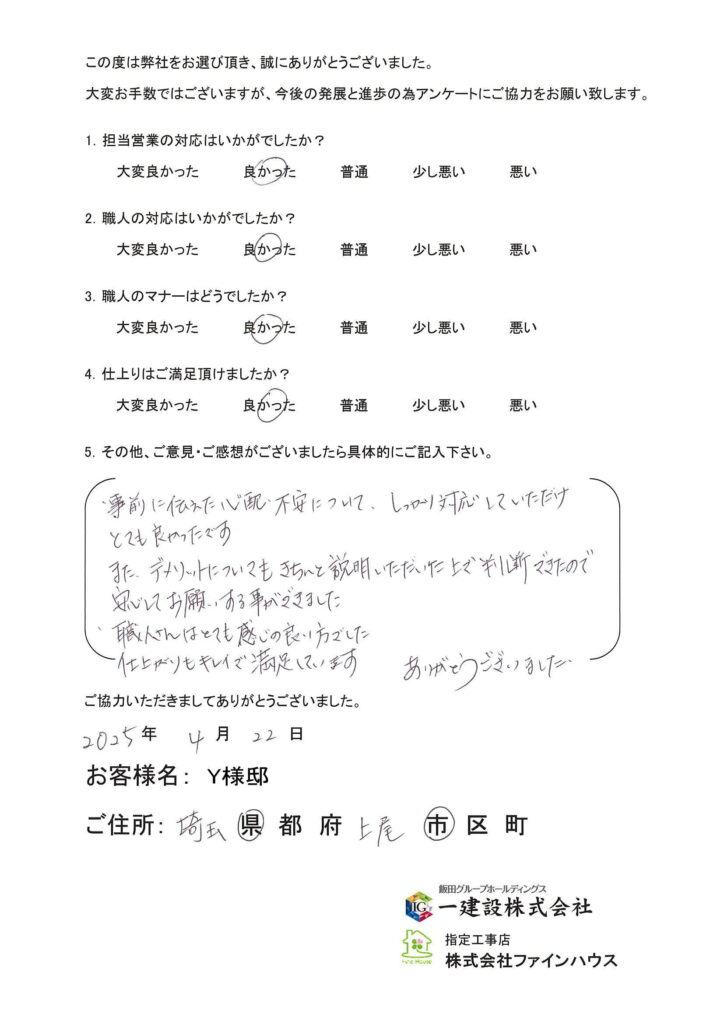 この度は弊社をお選び頂き、誠にありがとうございました。
大変お手数ではございますが、今後の発展と進歩の為アンケートにご協力をお願い致します。
1. 担当営業の対応はいかがでしたか？
大変良かった 良かった 普通 少し悪い 悪い
2. 職人の対応はいかがでしたか？
大変良かった 良かった 普通 少し悪い 悪い
3. 職人のマナーはどうでしたか？
大変良かった 良かった 普通 少し悪い 悪い
4. 仕上りはご満足頂けましたか？
大変良かった 良かった 普通 少し悪い 悪い
5. その他、ご意見・ご感想がございましたら具体的にご記入下さい。
・事前に伝えた心配・不安について、しっかり対応していただけ
とても良かったです
また、デメリットについてもきちんと説明いただいた上で判断できたので
安心してお願いする事ができました
・職人さんはとても感じの良い方でした
仕上がりもキレイで満足しています ありがとうございました。
ご協力いただきましてありがとうございました。
2025年 4月 22日
お客様名： Y様邸
ご住所： 埼玉 県 都 府 上尾 市 区 町
飯田グループホールディングス
IIG 一建設株式会社
指定工事店
Fine House 株式会社ファインハウス